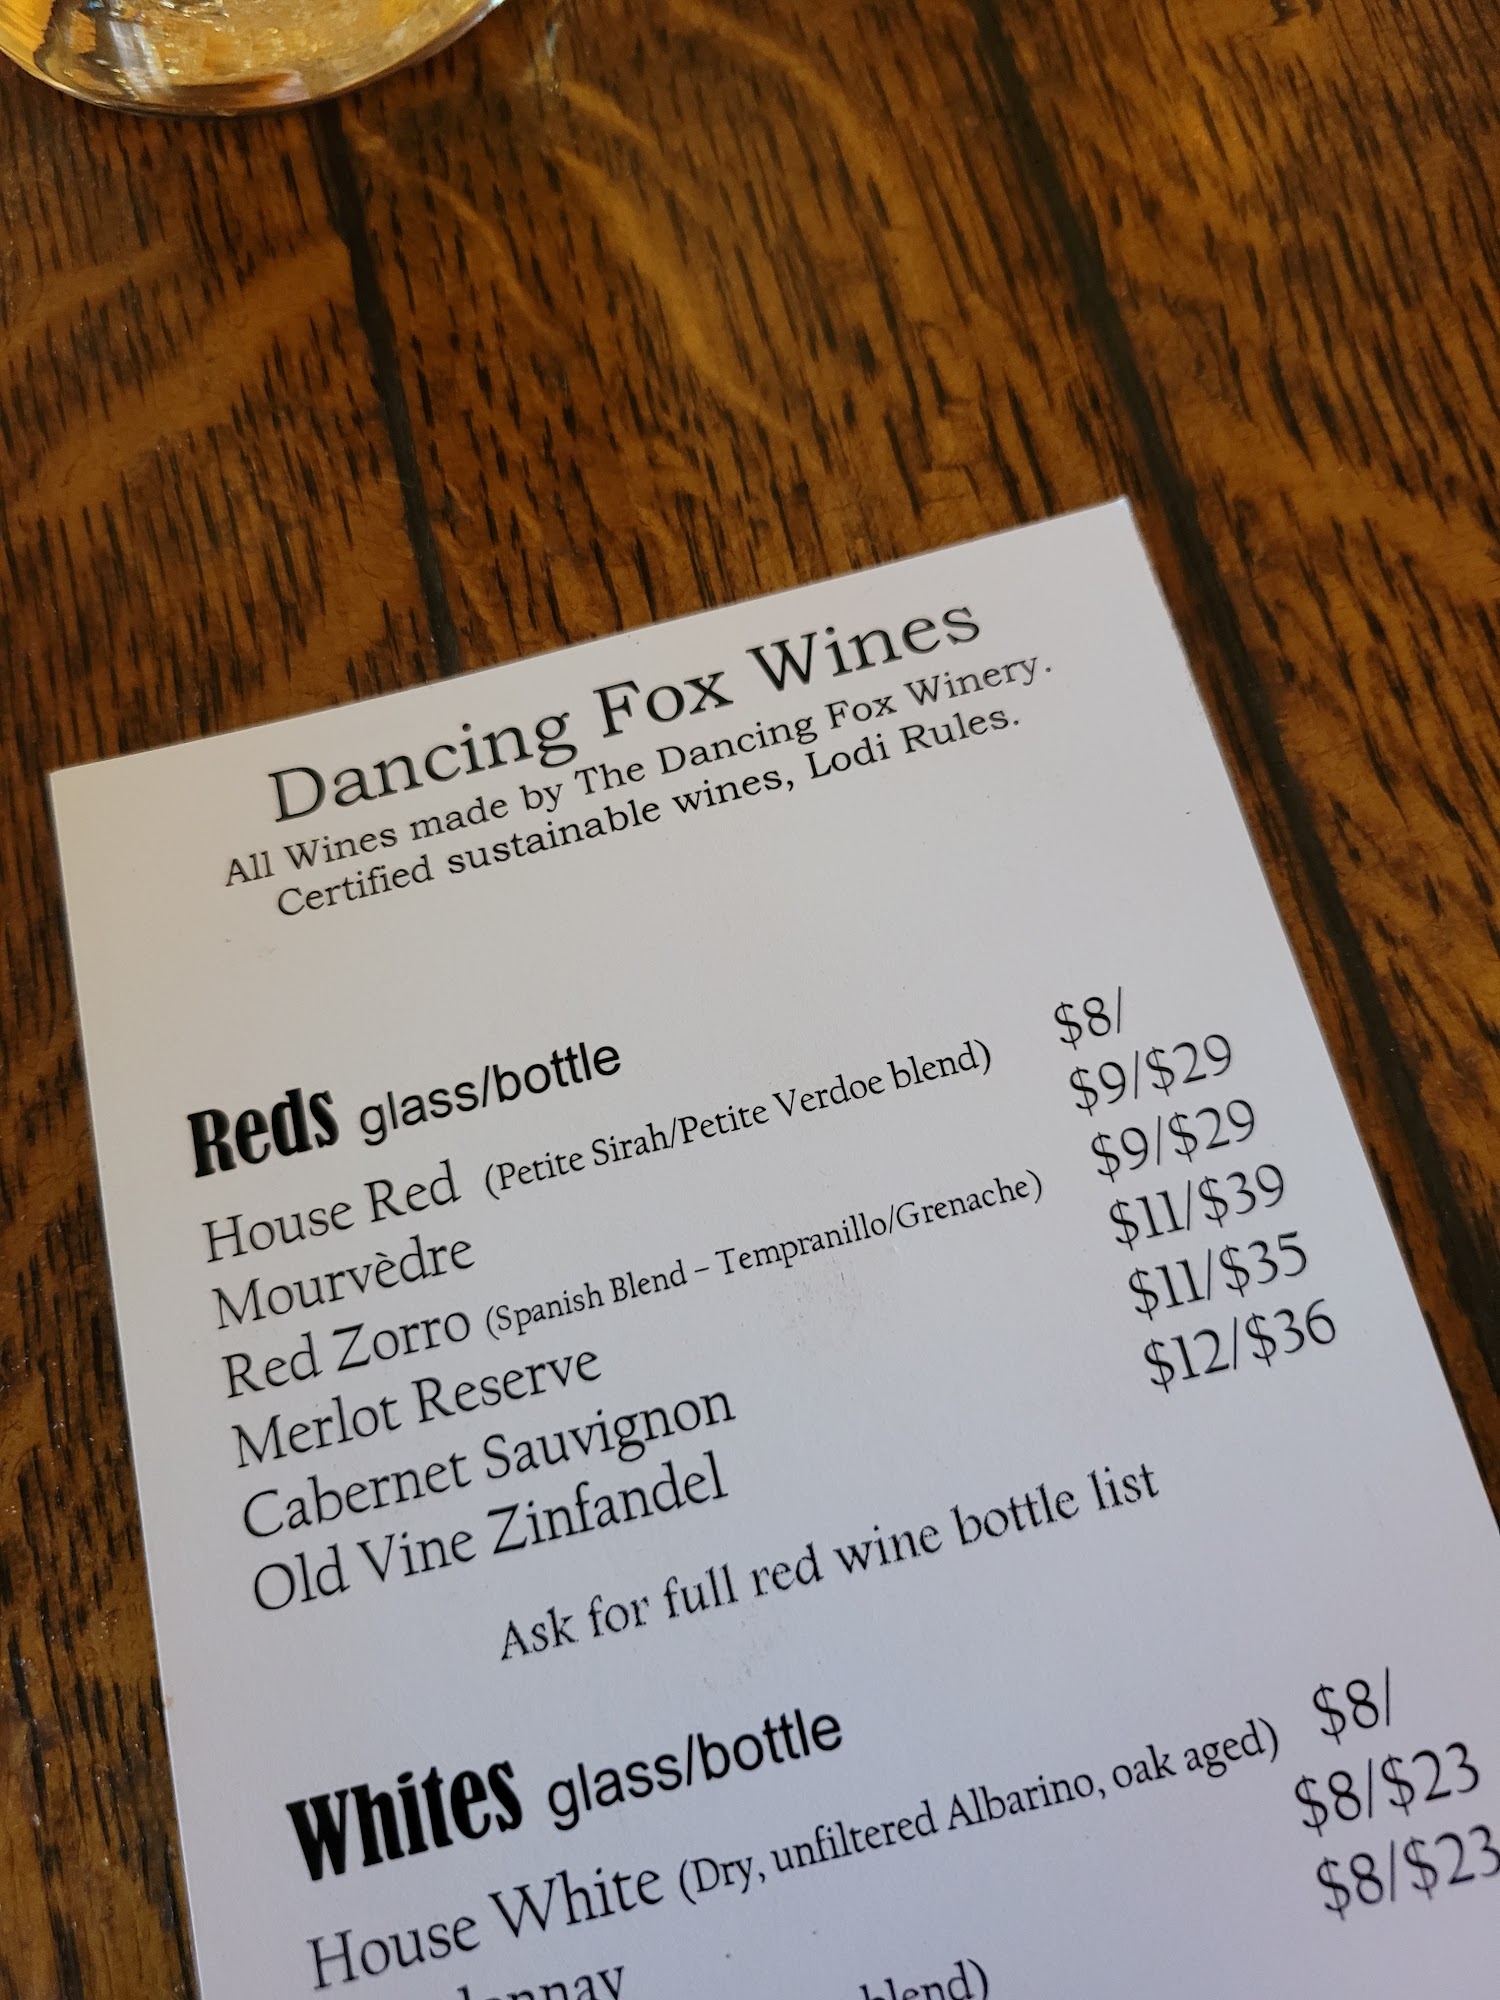 Dancing Fox Wines
All Wines made by The Dancing Fox Winery.
Certified sustainable wines, Lodi Rules.
Reds glass/bottle
House Red (Petite Sirah/Petite Verdoe blend) $8/
Mourvèdre $9/$29
Red Zorro (Spanish Blend – Tempranillo/Grenache) $9/$29
Merlot Reserve $11/$39
Cabernet Sauvignon $11/$35
Old Vine Zinfandel $12/$36
Ask for full red wine bottle list
Whites glass/bottle
House White (Dry, unfiltered Albarino, oak aged) $8/
$8/$23
blend) $8/$23